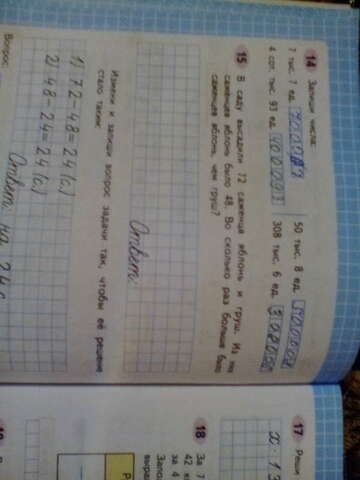 14 Запиши числа:
7 тыс. 7 ед.
50 тыс. 8 ед.
4 сот. тыс. 93 ед.
308 тыс. 6 ед.
15 В саду высадили 72 саженца яблонь и груш. Из них
саженцев яблонь было 48. Во сколько раз больше было
саженцев яблонь, чем груш?
Ответ:
Измени и запиши вопрос задачи так, чтобы её решение
стало таким:
1) 72-48=24 (с.)
2) 48-24=24 (с.)
Вопрос:
Ответ: на 24 с
17 Реши
x · 1
18 За 7
42 к
за 4
Запо
выра